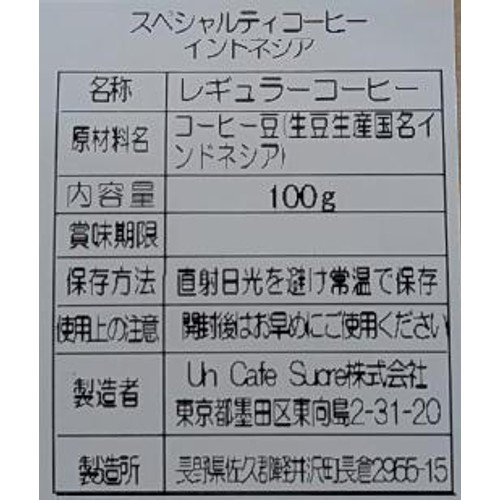 スペシャルティコーヒー
インドネシア
名称 レギュラーコーヒー
原材料名 コーヒー豆(生豆生産国名イ
ンドネシア)
内容量 100g
賞味期限
保存方法 直射日光を避け常温で保存
使用上の注意 開封後はお早めにご使用ください
製造者 Un Cafe Sucre株式会社
東京都墨田区東向島2-31-20
製造所 長野県佐久郡軽井沢町長倉2955-15